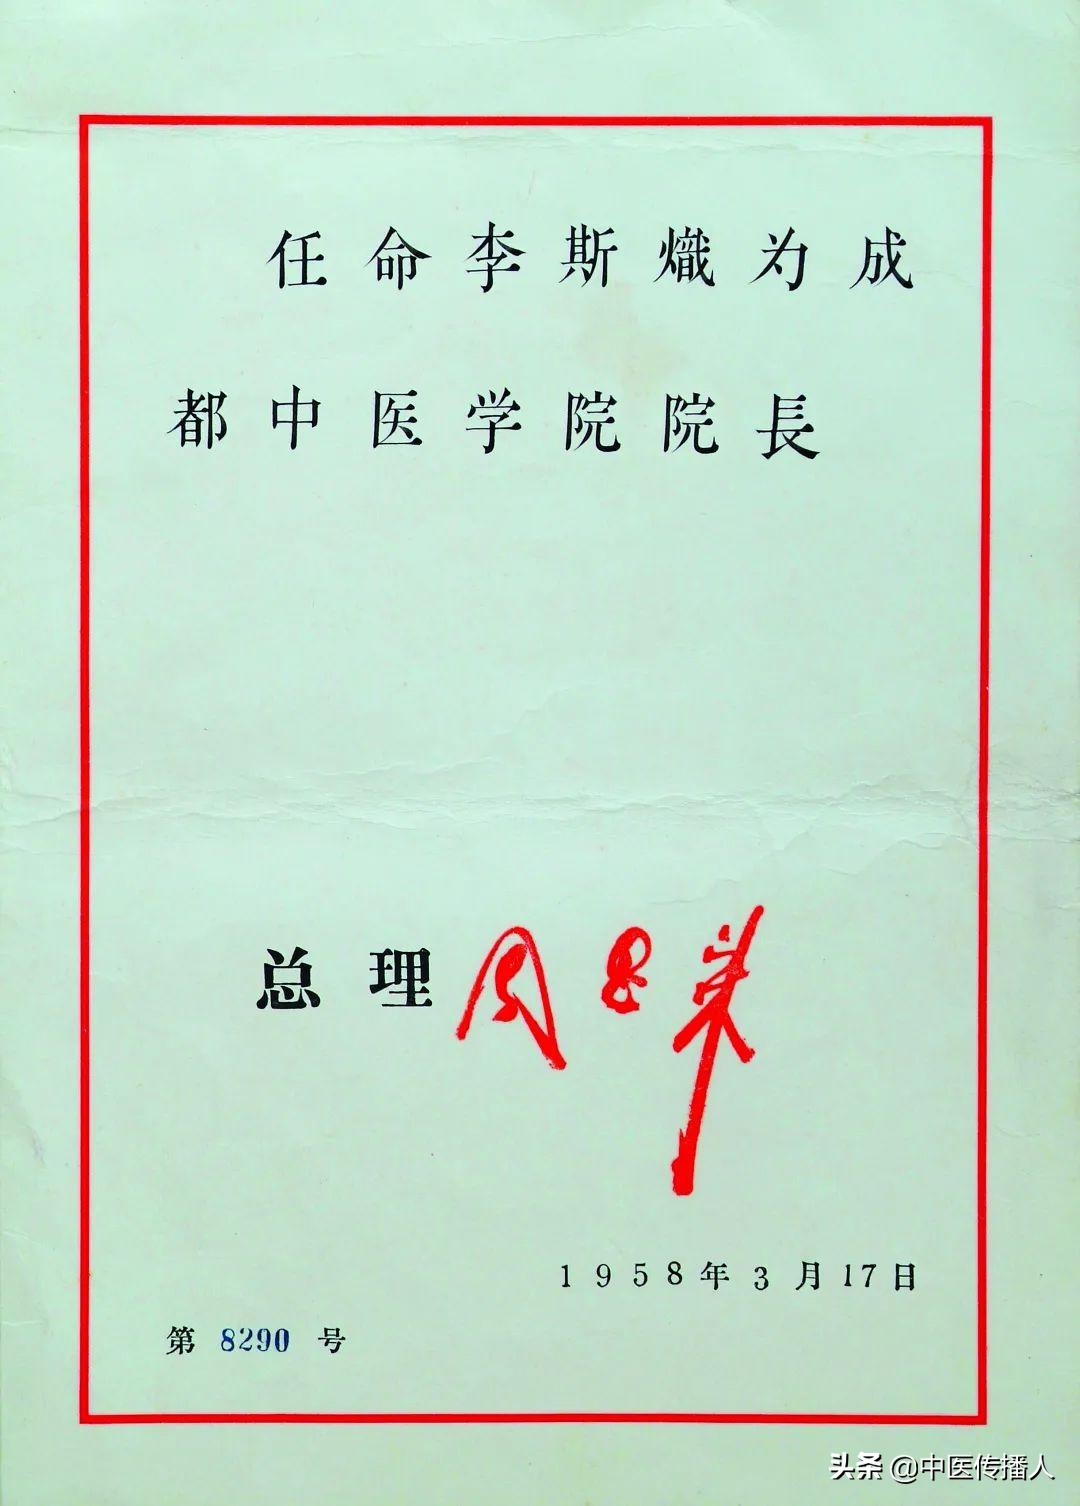 任命李斯熾为成
都中医学院院長
总理 周恩来
1958年3月17日
第 8290 号
头条 @中医传播人